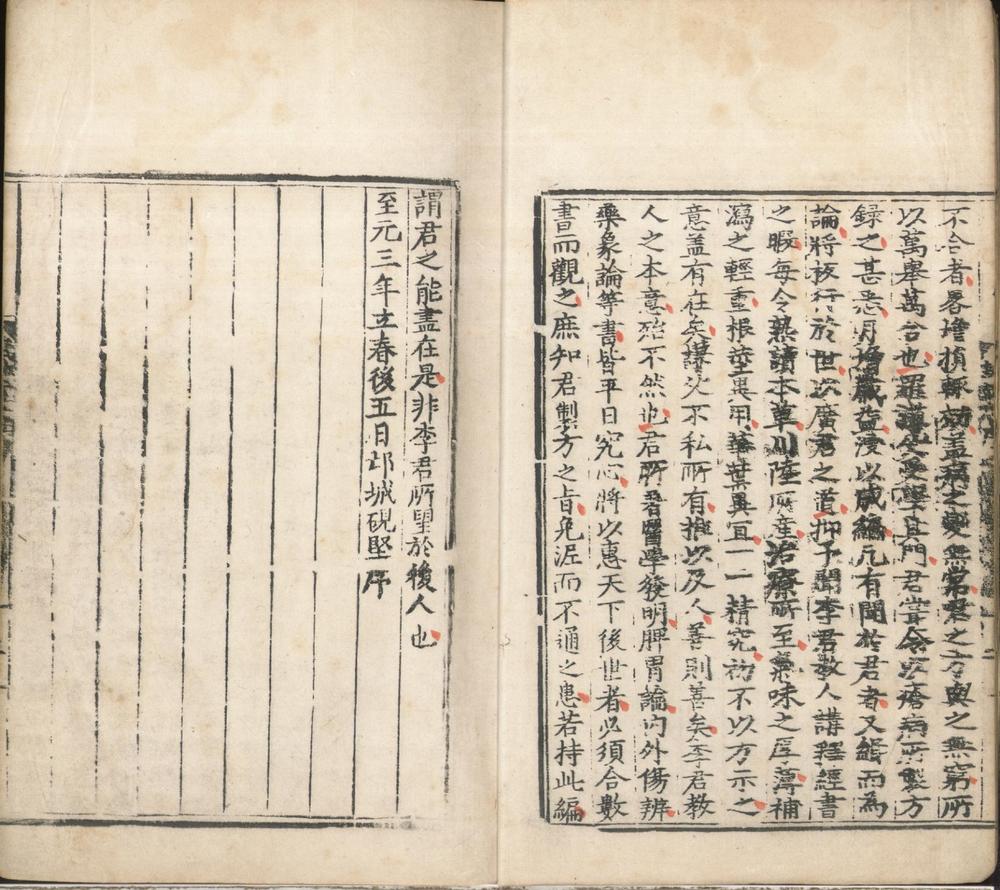 不合者畧增損輒效盖病之變無常君之方與之無窮所
以萬舉萬合也羅謙父受學其門君嘗令以療病所製方
録之甚悉月增歲益浸以成編凡有聞於君者又緝而為
論將板行於世以廣君之道抑予聞李君教人講釋經書
之暇每令熟讀本草川陸所產治療所至氣味之厚薄補
瀉之輕重根莖異用華葉異宜一一精究初不以方示之
意盖有在矣謙父不私所有推以及人善則善矣李君教
人之本意殆不然也君所著醫學發明脾胃論内外傷辨
藥象論等書皆平日究心將以惠天下後世者必須合數
書而觀之庶知君製方之旨免泥而不通之患若持此編
謂君之能盡在是非李君所望於後人也
至元三年立春後五日邙城硯堅序